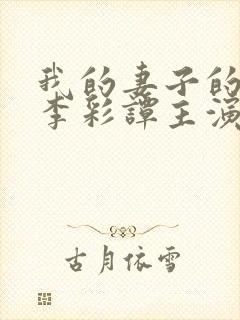 我的妻子的
李彩譚主演
古月依雪